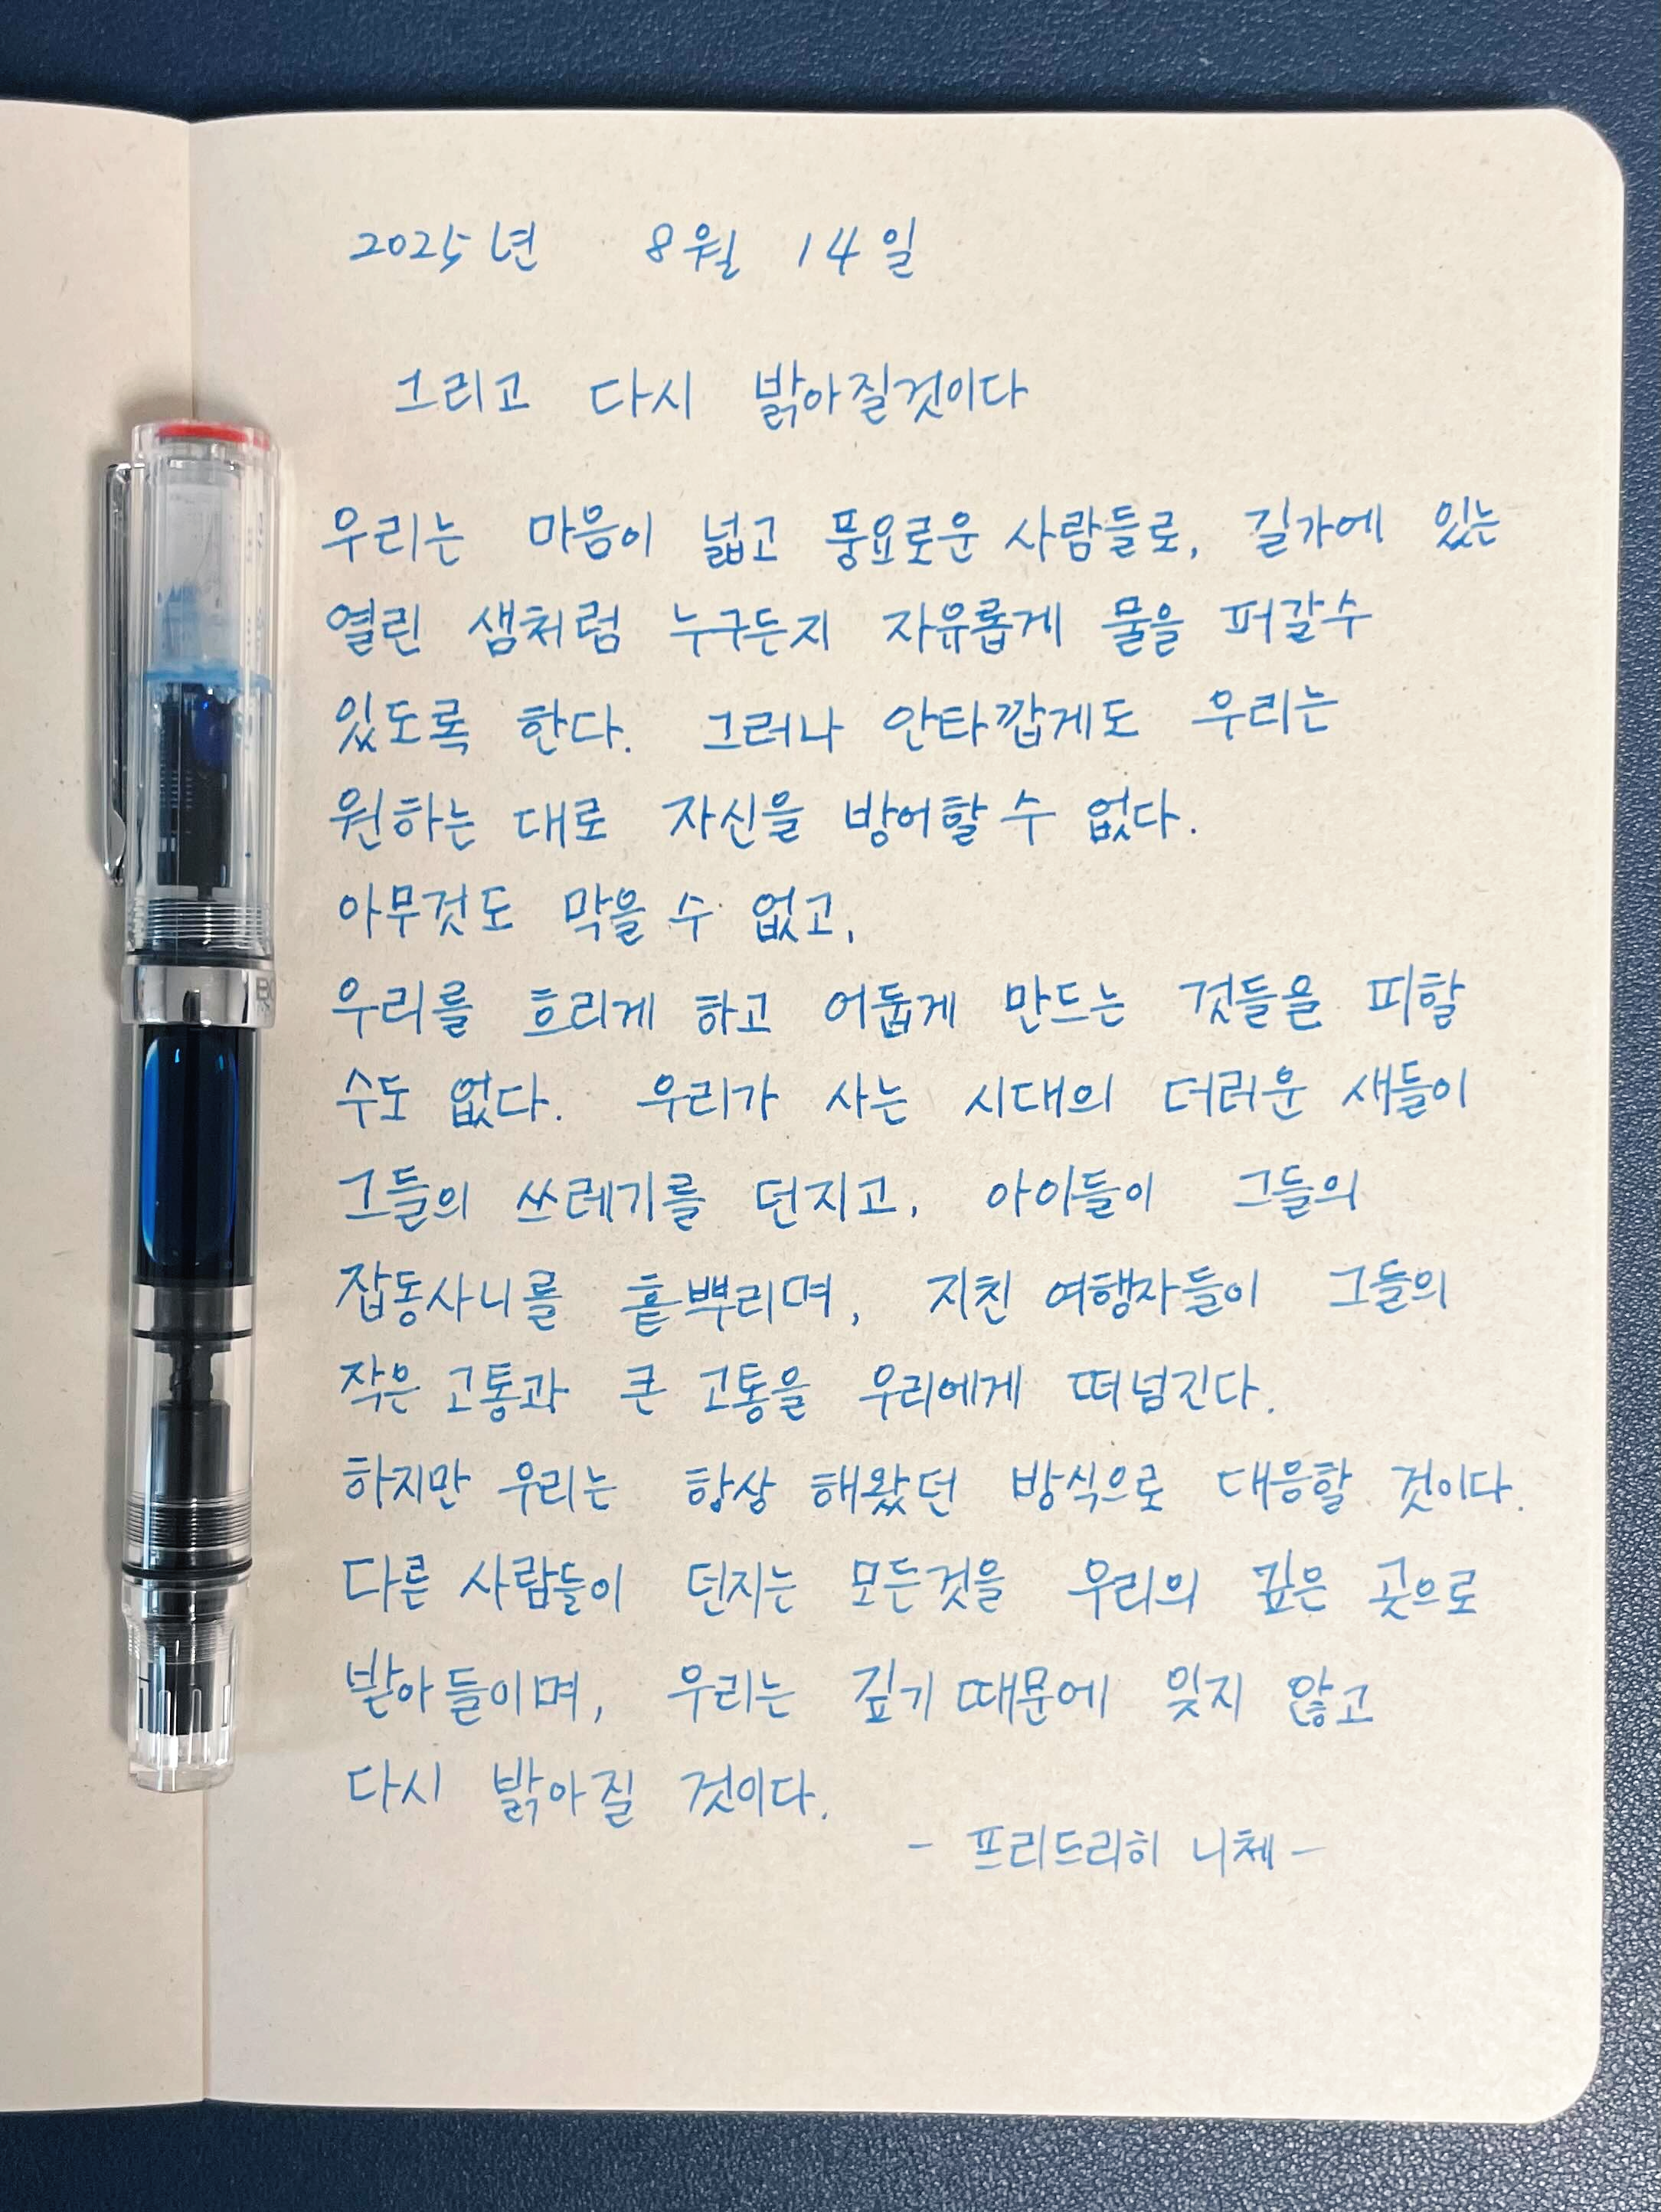 2025년 8월 14일
그리고 다시 밝아질것이다
우리는 마음이 넓고 풍요로운 사람들로, 길가에 있는
열린 샘처럼 누구든지 자유롭게 물을 퍼갈수
있도록 한다. 그러나 안타깝게도 우리는
원하는 대로 자신을 방어할 수 없다.
아무것도 막을 수 없고,
우리를 흐리게 하고 어둡게 만드는 것들을 피할
수도 없다. 우리가 사는 시대의 더러운 새들이
그들의 쓰레기를 던지고, 아이들이 그들의
잡동사니를 흩뿌리며, 지친 여행자들이 그들의
작은 고통과 큰 고통을 우리에게 떠넘긴다.
하지만 우리는 항상 해왔던 방식으로 대응할 것이다.
다른 사람들이 던지는 모든것을 우리의 깊은 곳으로
받아들이며, 우리는 깊기 때문에 잊지 않고
다시 밝아질 것이다.
- 프리드리히 니체 -